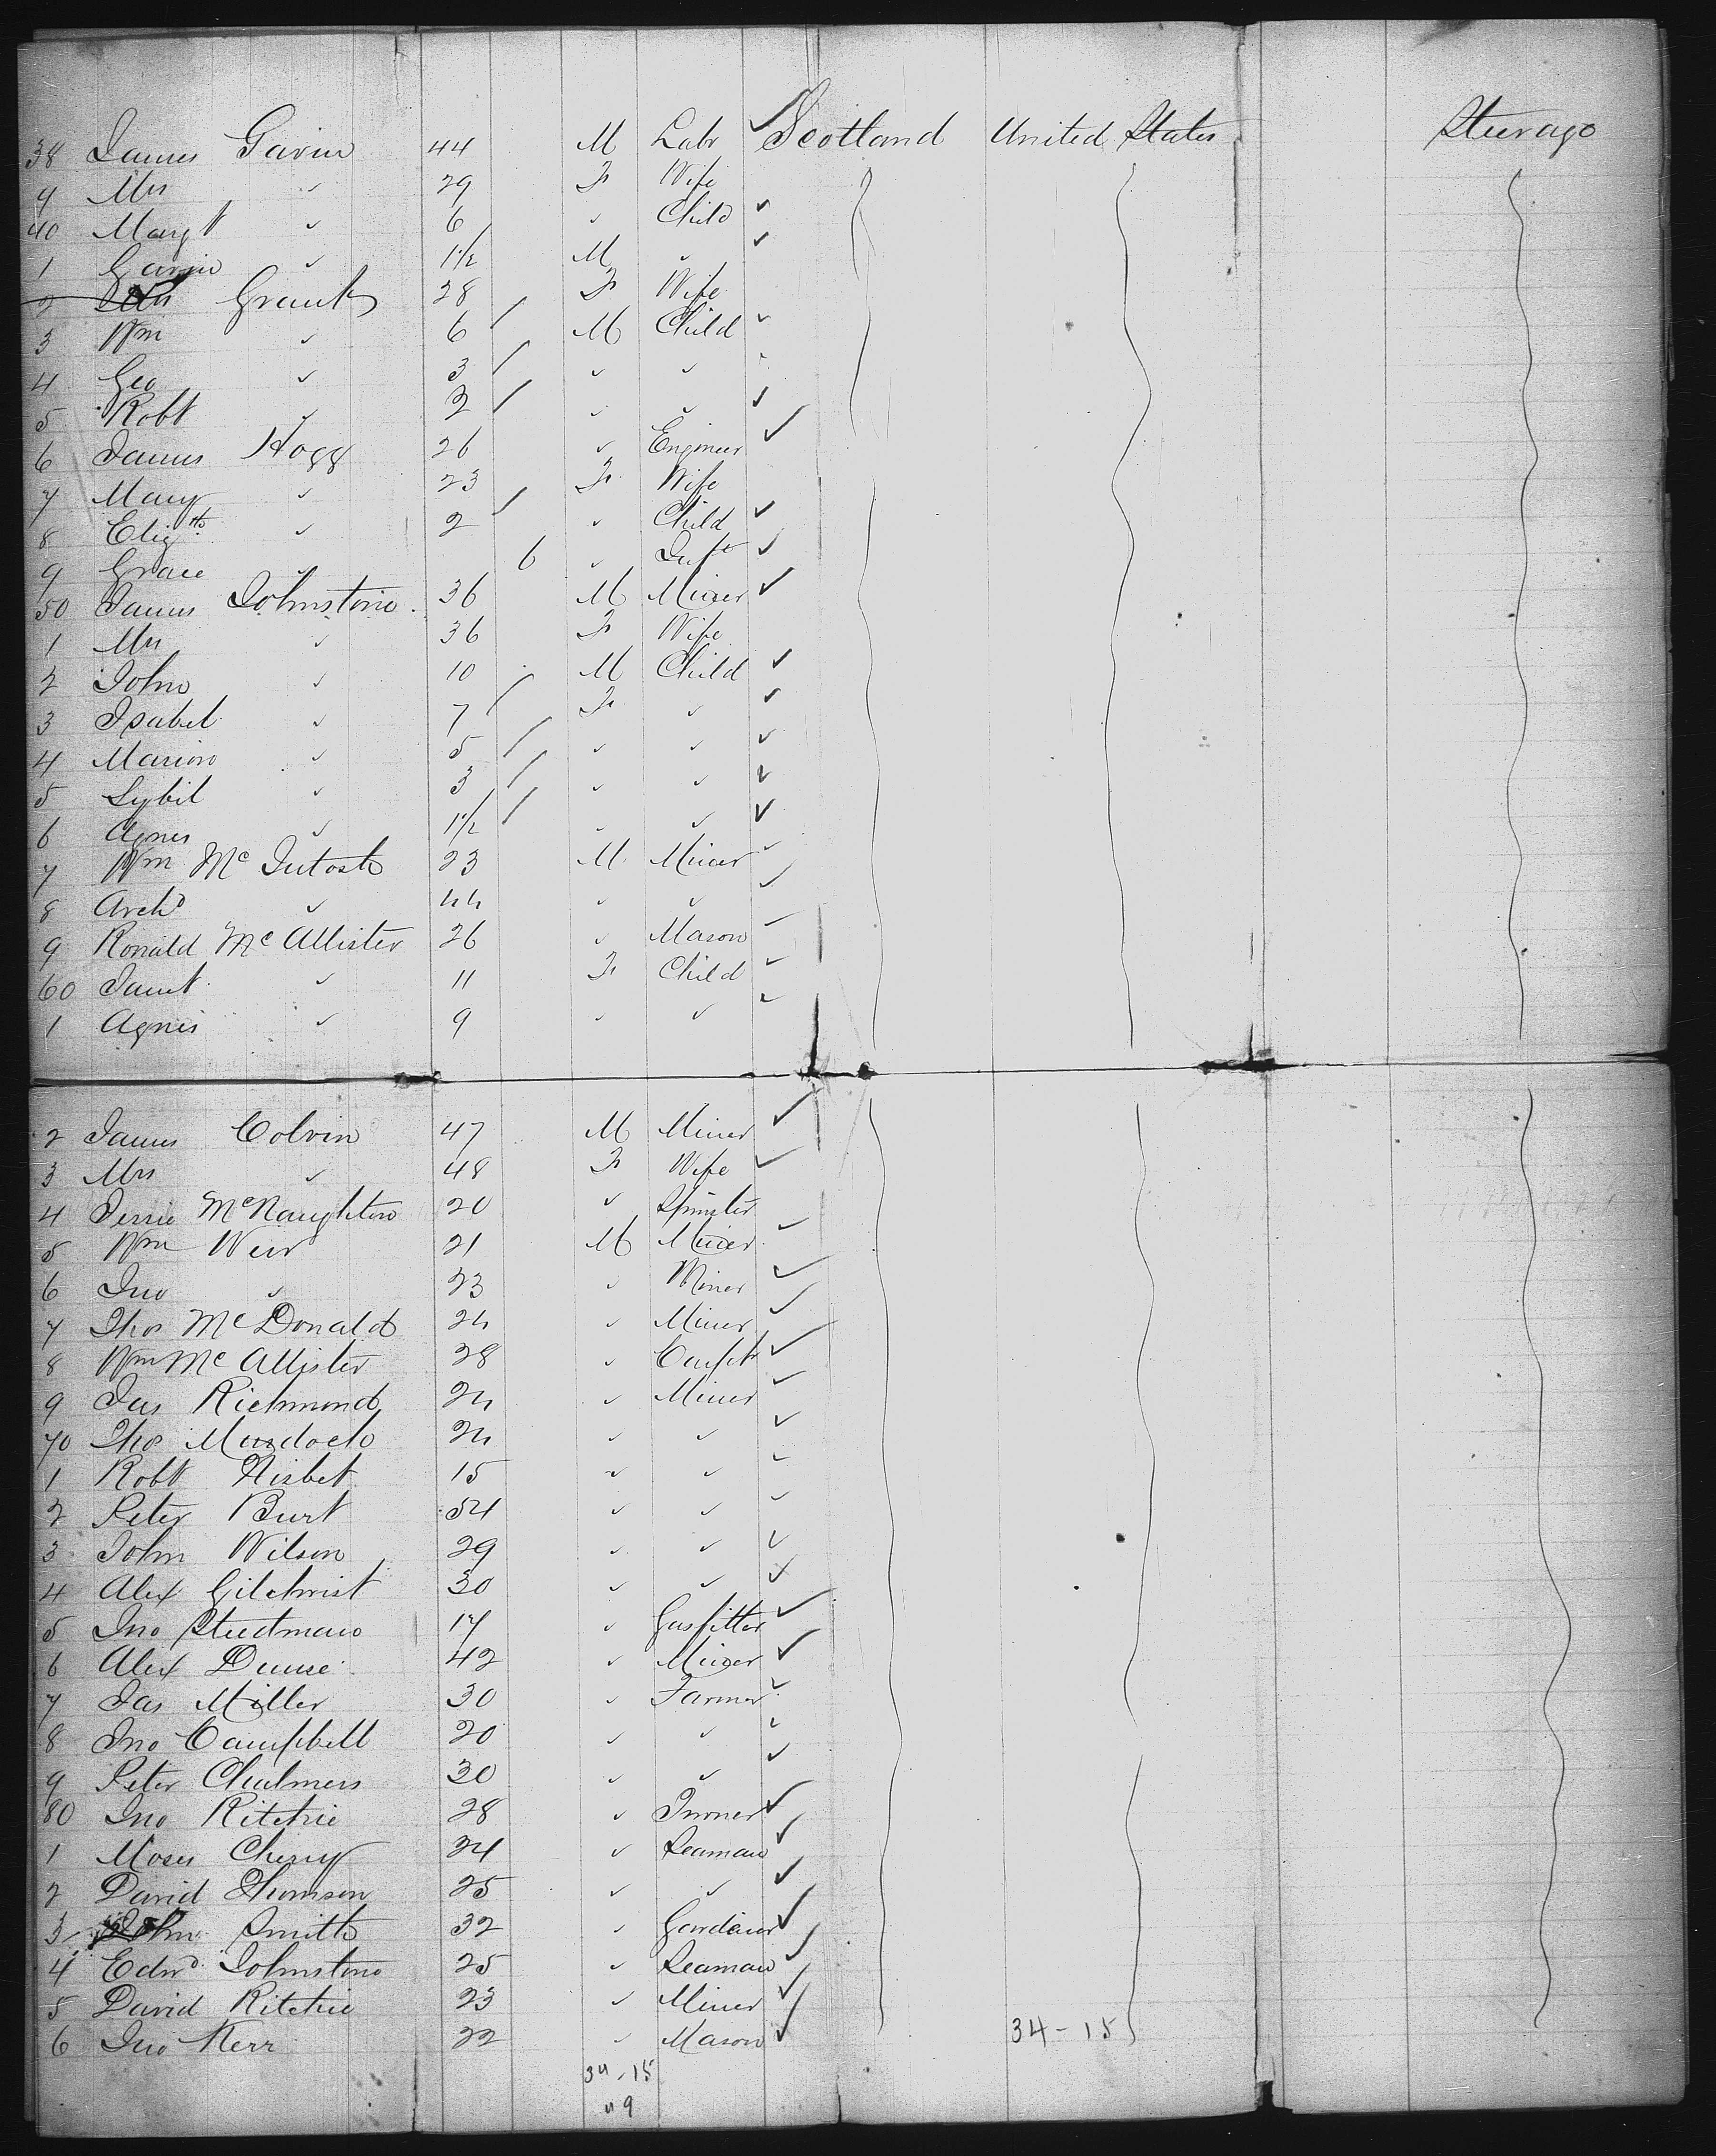 38 James Gavin 44 M Labr ✓ Scotland United States Steerage
9 Mrs " 29 F Wife
40 Margt " 6 " Child ✓
1 Gavin " 1½ M " ✓
2 Mrs Grant 28 F Wife
3 Wm " 6 / M Child ✓
4 Geo " 3 / " "
5 Robt " 2 / " " ✓
6 James Hogg 26 " Engineer ✓
7 Mary " 23 F Wife
8 Elizth " 2 / " Child ✓
9 Grace " 6 " Inft ✓
50 James Johnstone 36 M Miner ✓
1 Mrs " 36 F Wife
2 John " 10 M Child ✓
3 Isabel " 7 / F " ✓
4 Marion " 5 / " " ✓
5 Sybil " 3 / " " ✓
6 Agnes " 1½ / " " ✓
7 Wm McIntosh 23 M Miner ✓
8 Archd " 44 " " ✓
9 Ronald McAllister 26 " Mason ✓
60 Janet " 11 F Child ✓
1 Agnes " 9 " " ✓
2 James Colvin 47 M Miner ✓
3 Mrs " 48 F Wife ✓
4 Jessie McNaughton 20 " Spinster
5 Wm Weir 21 M Miner ✓
6 Jno " 23 " Miner ✓
7 Thos McDonald 24 " Miner ✓
8 Wm McAllister 28 " Carptr ✓
9 Jas Richmond 24 " Miner ✓
70 Thos Murdoch 24 " " ✓
1 Robt Nisbet 15 " " ✓
2 Peter Burt 54 " " ✓
3 John Wilson 29 " " ✓
4 Alex Gilchrist 30 " " ✓
5 Jno Steedman 17 " Gasfitter ✓
6 Alex Dunse 42 " Miner ✓
7 Jas Miller 30 " Farmer ✓
8 Jno Campbell 20 " " ✓
9 Peter Chalmers 30 " " ✓
80 Jno Ritchie 28 " Turner ✓
1 Moses Cherry 24 " Seaman ✓
2 David Thomson 25 " " ✓
3 John Smith 32 " Gardiner ✓
4 Edwd Johnstone 25 " Seaman ✓
5 David Ritchie 23 " Miner ✓
6 Jno Kerr 22 " Mason ✓ 34-15
34-15
49